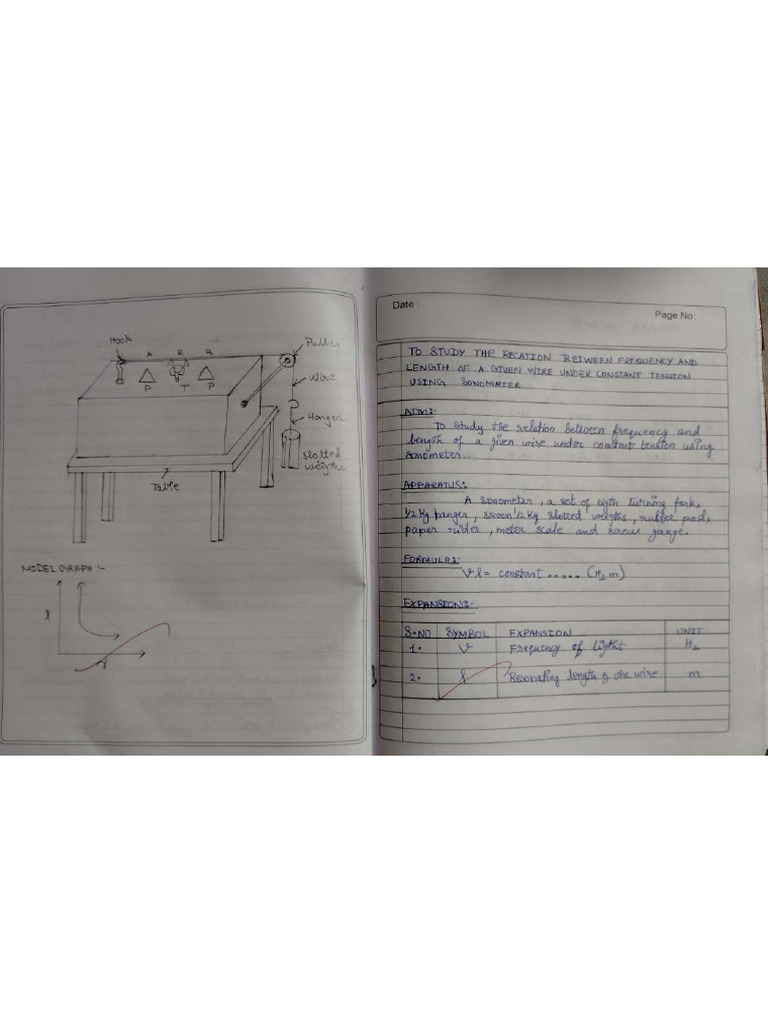 Hook
A R B
P T P
Pulley
Wire
Hanger
Slotted
weigths
Table
MODEL GRAPH :-
l
Date :
Page No:
TO STUDY THE RECATION BETWEEN FREQUENCY AND
LENGTH OF A GIVEN WIRE UNDER CONSTANT TENSION
USING SONOMATER
AIM:-
To study the relation between frequency and
length of a given wire under constant tension using
sonometer.
APPARATUS:-
A sonometer, a set of eigth turning fork,
1/2 Kg hanger, seven 1/2 Kg slotted weigths, rubber pad,
paper rider, meter scale and screw gauge.
FORMULA:-
νl = constant ..... (Hz m)
EXPANSION:-
S.NO SYMBOL EXPANSION UNIT
1. ν Frequency of light Hz
2. l Resonating length of the wire m